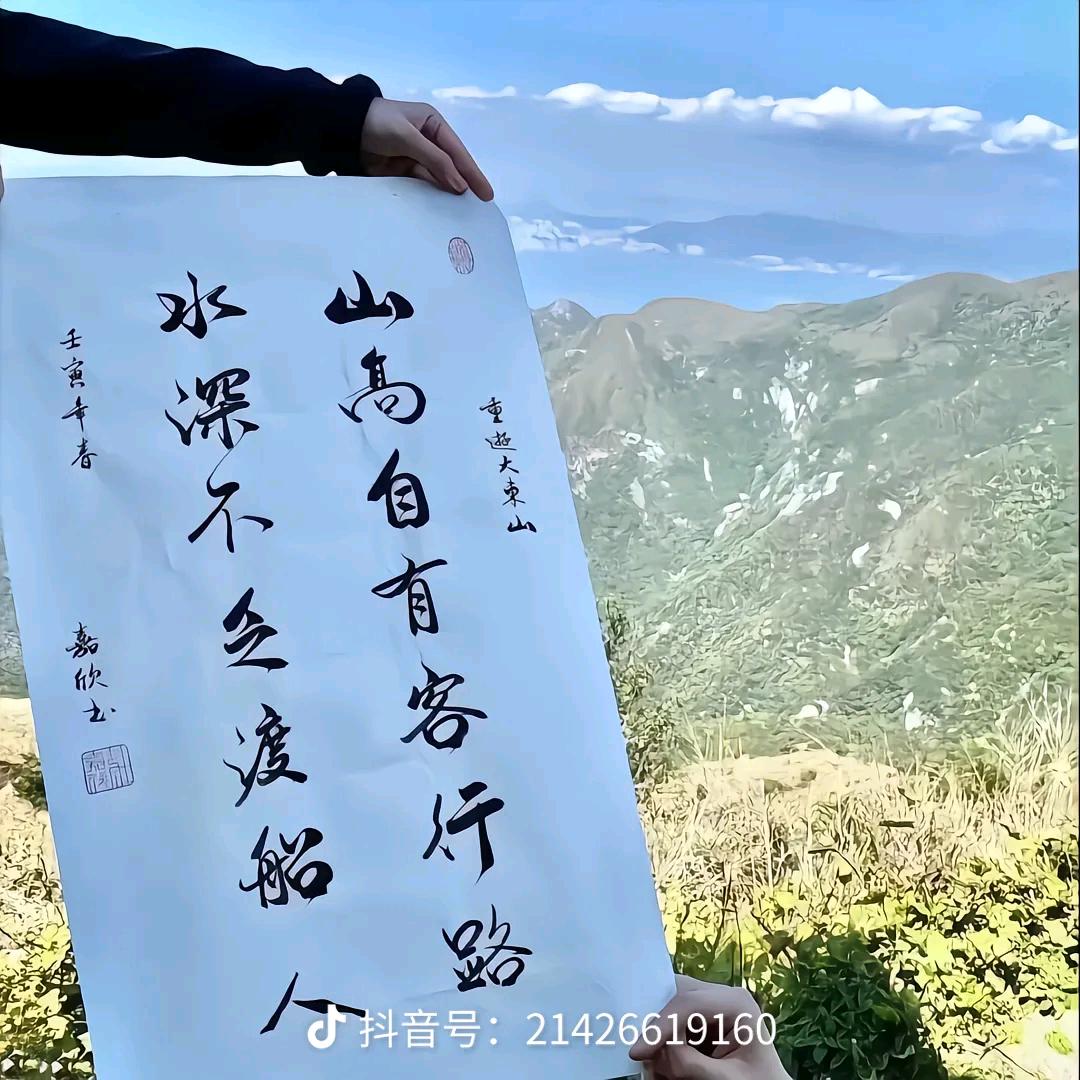 重遊大東山
山高自有客行路
水深不乏渡船人
壬寅年春
嘉欣书
抖音号：21426619160